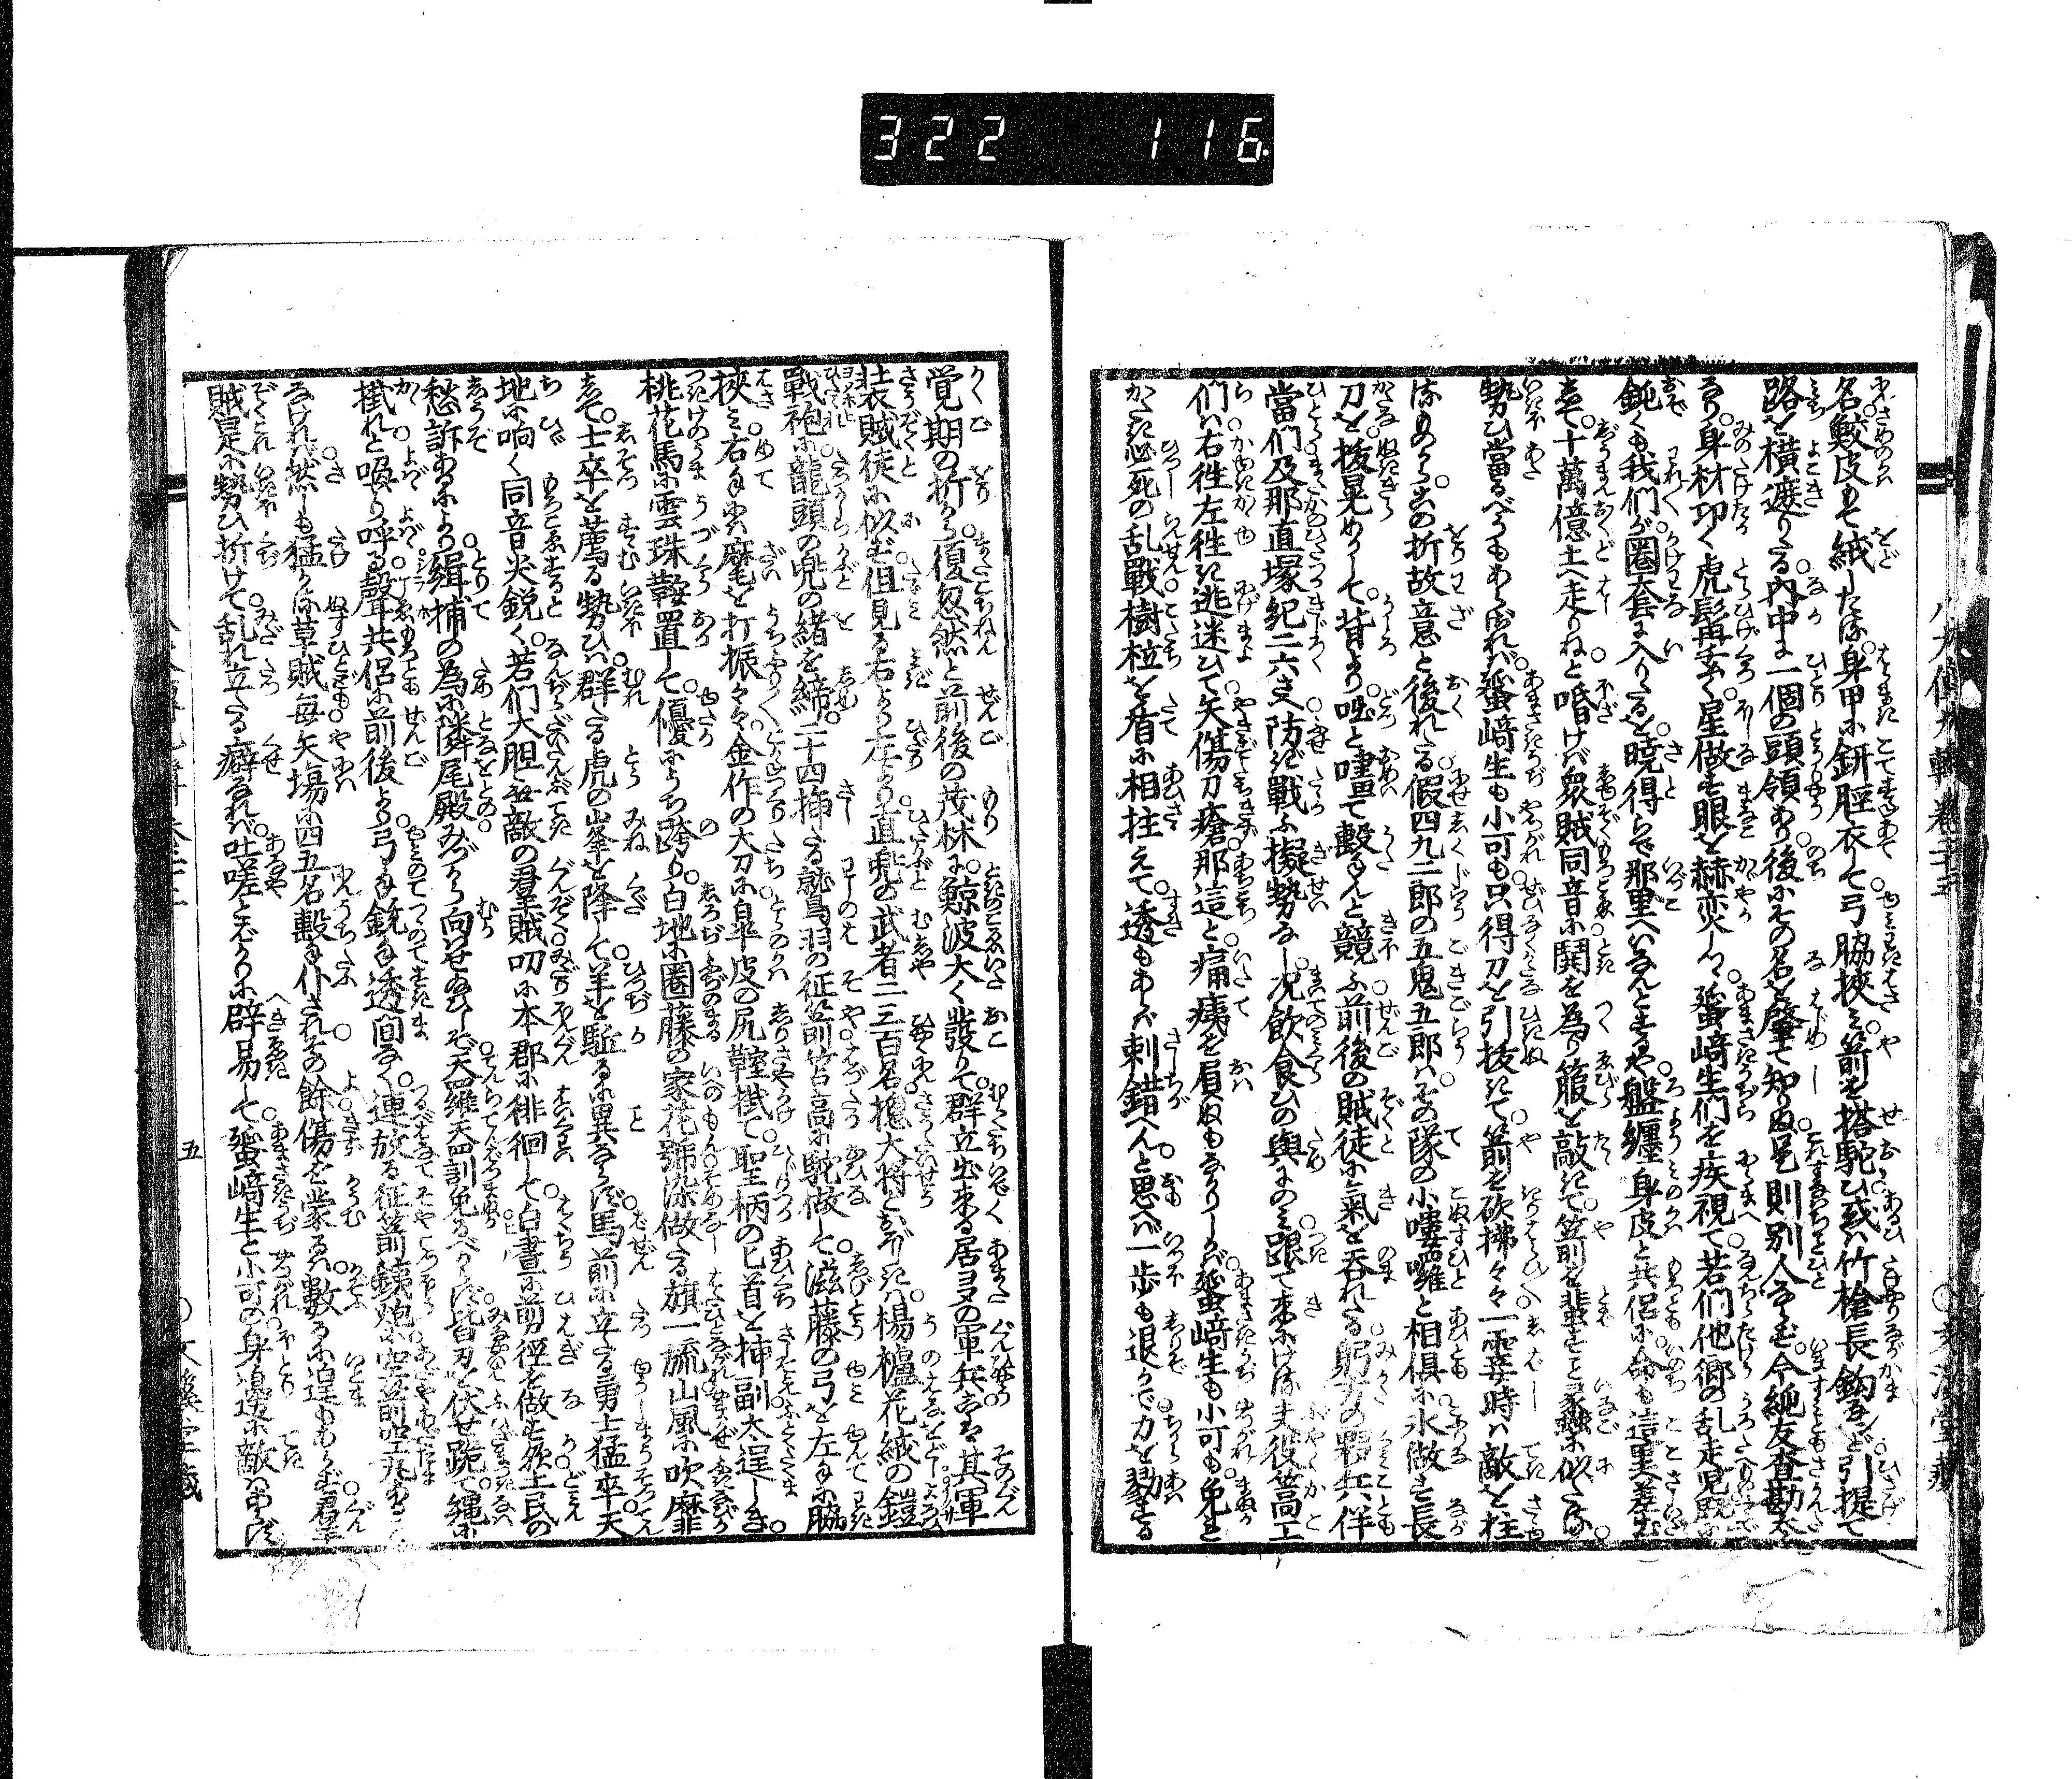 322 116
八犬傳九輯卷二十三
名鮫皮もて絨したる身甲に釬脛衣して弓脇挾み箭を搭駝ひ或は竹槍長鈎など引提て
路を橫遮りたる內中に一個の頭領あり後にその名を肇て知りぬ是則別人ならず今純友査勘太
なり身材卬く虎髭再垂く星做す眼を赫奕しつゝ蜑崎生們を疾視て若們他鄉の乱走兒
鈍くも我們が圈套に入りたるを曉得らで那里へいなんとするや盤纏身皮と共侶に命も這里へ
して十萬億土へ走りねと嘲けば衆賊同音に鬨を為り箙を敲きて箭を蜚すこと螽に似たる
勢ひ當るべうもあらざれば蜑崎生も小可も只得刀を引拔きて箭を砍拂々々一霎時は敵を拄
る折故意と後れたる假四九二郎の五鬼五郎はその隊の小嘍囉と相俱に氷做す長
刀を拔晃めかして背より咄と嘩て擊んと競ふ前後の賊徒に氣を吞れたる躬方の野兵伴
當們及那直塚紀二六さへ防ぎ戰ふ擬勢なし况飮食ひの與にのみ跟て來にける夫役篙工
們は右徃左徃に逃迷ひて矢傷刀瘡那這と痛痍を屓ぬもなかりしかば蜑崎生も小可も免
かたき必死の乱戰樹柆を盾に相拄えて透もあらば刺錯へんと思へば一步も退かで力を勠する
覚期の折から復忽然と前後の茂林に鯨波大く發りて群立出來る居多の軍兵其軍
裝賊徒に似ず但見る右より左より直兜の武者二三百名摠大将とおぼしきは楊櫨花絨の鎧
戰袍に龍頭の兜の緒を締二十四揷たる鷲羽の征箭筈高に駝做して滋藤の弓を左手に脇
挾み右手には麾を打振々々金作の大刀に皐皮の尻鞘掛て聖柄の匕首を揷副太逞しき
桃花馬に雲珠鞍置して優にうち跨り白地に圈藤の家花號染做たる旗一旒山風に吹靡
して士卒を薦る勢ひは群たる虎の山峯を降して羊を駈るに異ならず馬前に立たる勇士猛卒天
地に响く同音尖銳く若們大胆無敵の羣賊叨に本郡に徘徊して白晝に剪徑を做す欲土民の
愁訴あるにより緝捕の為に隣尾殿みづから向はせ給ひしぞ天羅天罰免るべからず皆刃を伏せ跪て縄に
掛れと喚り呼る聲共侶に前後より弓手銃手透間なく連放る征箭銕炮に空前空丸
なければ然しも猛かる草賊毎矢場に四五名擊仆されその餘傷を蒙るは數るに遑もあらず羣
賊是に勢ひ折けて乱れ立たる癖なれば吐嗟とばかりに辟易して蜑崎生と小可の身邊に敵はあらず
五